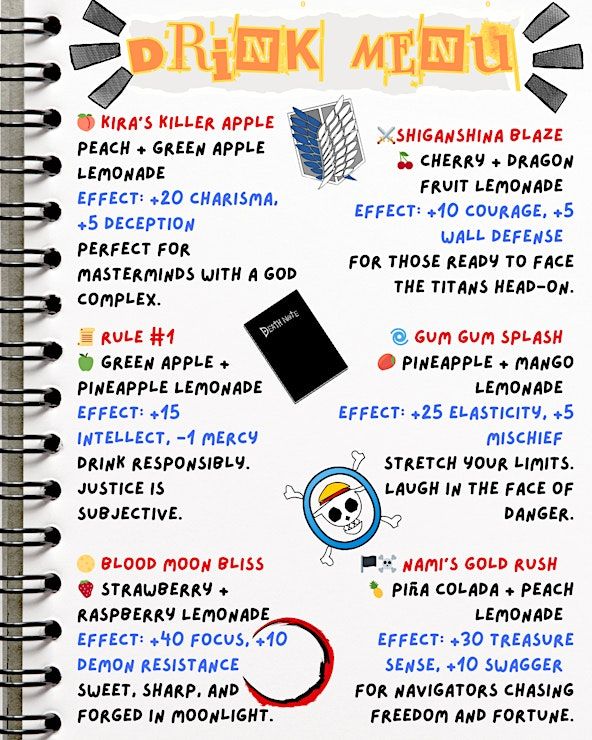 DRINK MENU
🍑 KIRA'S KILLER APPLE
PEACH + GREEN APPLE
LEMONADE
EFFECT: +20 CHARISMA,
+5 DECEPTION
PERFECT FOR
MASTERMINDS WITH A GOD
COMPLEX.
📜 RULE #1
🍏 GREEN APPLE +
PINEAPPLE LEMONADE
EFFECT: +15
INTELLECT, -1 MERCY
DRINK RESPONSIBLY.
JUSTICE IS
SUBJECTIVE.
🌕 BLOOD MOON BLISS
🍓 STRAWBERRY +
RASPBERRY LEMONADE
EFFECT: +40 FOCUS, +10
DEMON RESISTANCE
SWEET, SHARP, AND
FORGED IN MOONLIGHT.
DEATH NOTE
⚔️SHIGANSHINA BLAZE
🍒 CHERRY + DRAGON
FRUIT LEMONADE
EFFECT: +10 COURAGE, +5
WALL DEFENSE
FOR THOSE READY TO FACE
THE TITANS HEAD-ON.
🌀 GUM GUM SPLASH
🥭 PINEAPPLE + MANGO
LEMONADE
EFFECT: +25 ELASTICITY, +5
MISCHIEF
STRETCH YOUR LIMITS.
LAUGH IN THE FACE OF
DANGER.
🏴‍☠️ NAMI'S GOLD RUSH
🍍 PIÑA COLADA + PEACH
LEMONADE
EFFECT: +30 TREASURE
SENSE, +10 SWAGGER
FOR NAVIGATORS CHASING
FREEDOM AND FORTUNE.